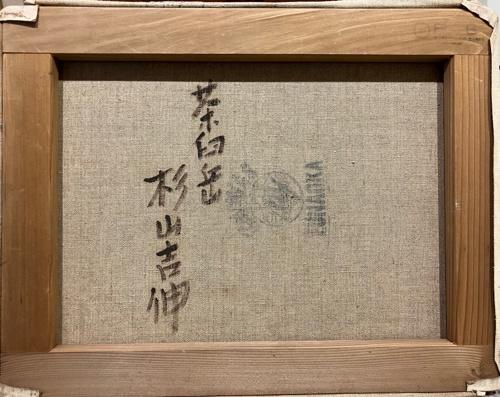 茶臼岳
杉山吉伸
FUNAOKA